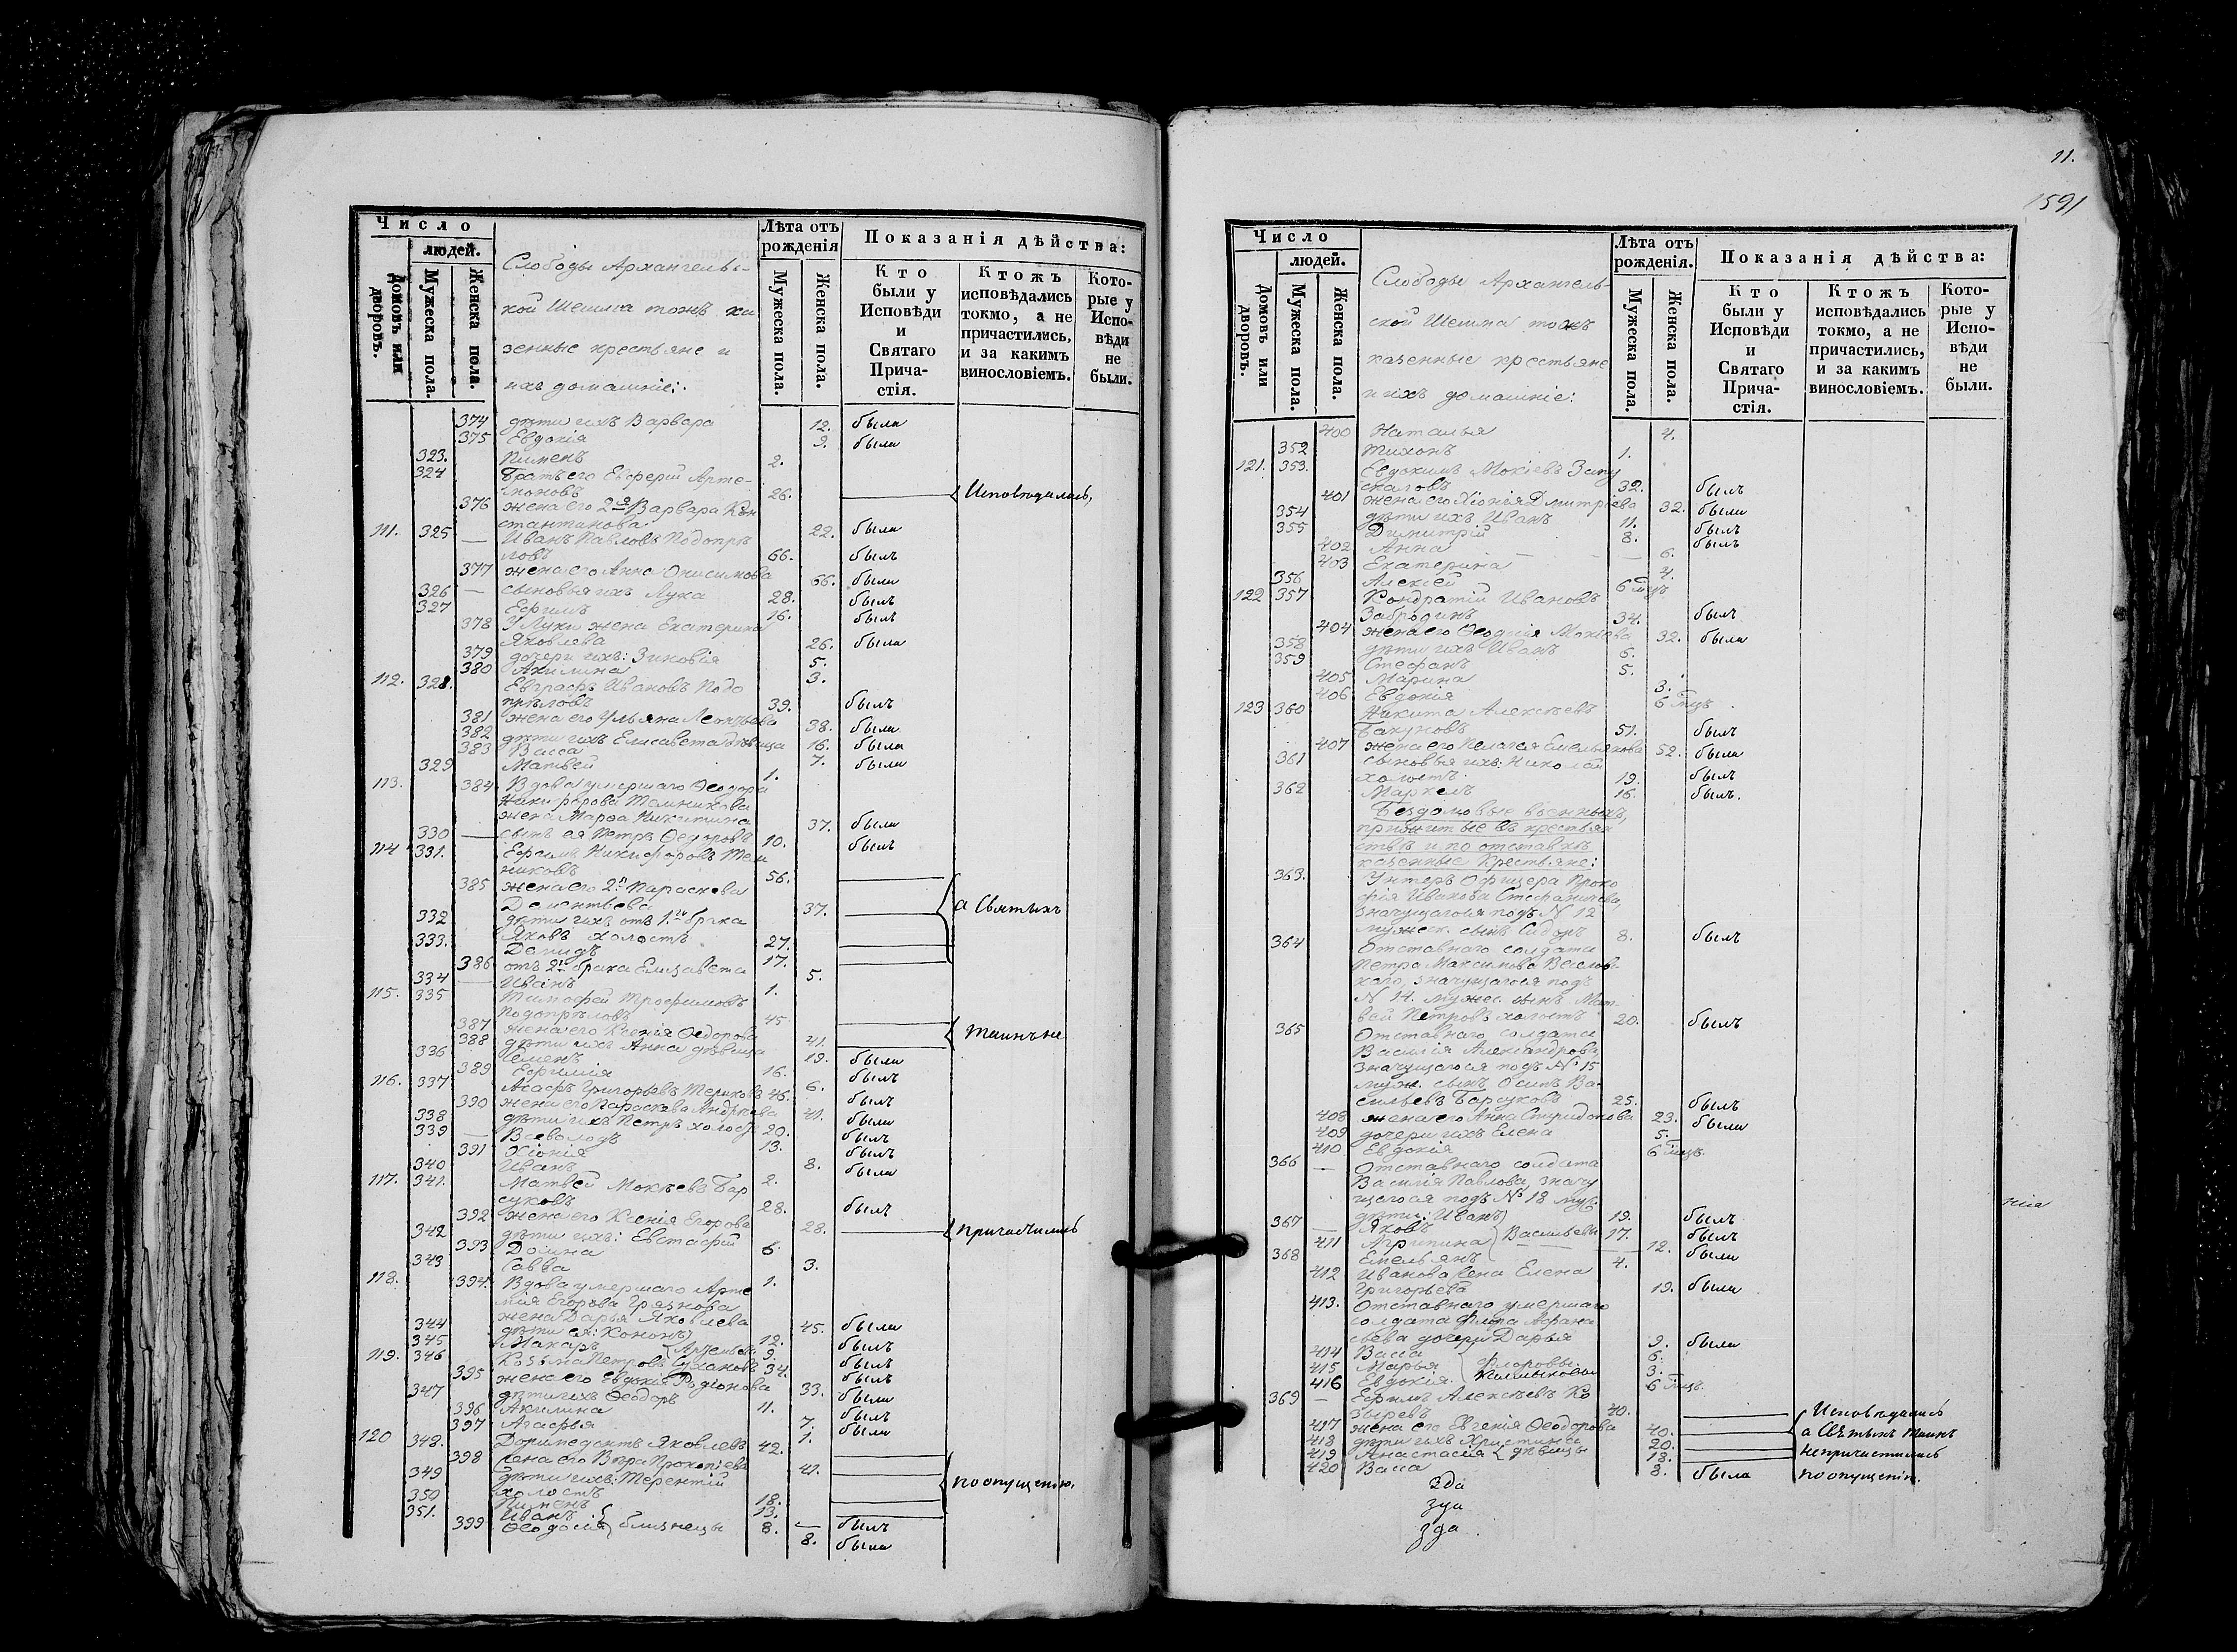 Число
людей.
домовъ или дворовъ.
Мужеска пола.
Женска пола.
Слободы Архангельс-
кой Шелига тожъ ка
зенные крестьяне и
ихъ домашніе:
Лѣта отъ рожденія
Мужеска пола.
Женска пола.
Показанія дѣйства:
Кто были у Исповѣди и Святаго Причастія.
Ктожъ исповѣдались токмо, а не причастились, и за какимъ винословіемъ.
Которые у Исповѣди не были.
374 дѣти ихъ Варвара 12. была
375 Евдокія 9. была
323. Пименъ 2.
324 Братъ его Елферій Арте-
моновъ 26. Исповѣдались,
376 жена его 2я Варвара Кон
стантинова 22. была
111. 325 Иванъ Павловъ Подопрѣ
ловъ 66. былъ
377 жена его Анна Онисимова 66. была
326 сыновья ихъ Лука 28. былъ
327 Ефимъ 16. былъ
378 У Луки жена Екатерина
Яковлева 26. была
379 дочери ихъ: Зиновія 5.
380 Акилина 3.
112. 328. Евграфъ Ивановъ Подо
прѣловъ 39. былъ
381 жена его Ульяна Леонтьева 38. была
382 дѣти ихъ Елисавета дѣвица 16. была
383 Васса 7. была
329 Матвей 1.
113. 384 Вдова умершаго Ѳеодора
Никифорова Темникова
жена Марѳа Никитина 37. была
330 сынъ ея Петръ Ѳедоровъ 10. былъ
114 331. Ефимъ Никифоровъ Тем
никовъ 56.
385 жена его 2я Параскева
Дементьева 37. а Святыхъ
332 дѣти ихъ отъ 1го брака
Яковъ холостъ 27.
333. Данидъ 17.
386 отъ 2го брака Елисавета 5.
334 Иванъ 1.
115. 335 Тимофей Трофимовъ
Подопрѣловъ 45
387 жена его Ксенія Ѳедорова 41. Таинъ не
388 дѣти ихъ Анна дѣвица 19. была
336 Семенъ 16. былъ
389 Ефимія 6.
116. 337 Асафъ Григорьевъ Териковъ 46. былъ
390 жена его Параскева Андреева 41. была
338 дѣти ихъ Петръ холостъ 20. былъ
339 Всеволодъ 13. былъ
391 Хіонія 8. была
340 Иванъ 2.
117. 341. Матвей Мокѣевъ Бар
суковъ 28. былъ
392 жена его Ксенія Егорова 28. причастились
342 дѣти ихъ: Евстафій 6.
393 Домна 3.
343 Савва 1.
118. 394. Вдова умершаго Арте
мія Егорова Грязнова
жена Дарья Яковлева 45. была
344 дѣти ея: Кононъ 12. былъ
345 Макаръ 9. былъ
119. 346 Козьма Петровъ Сухановъ 34. былъ
395 жена его Евдокія Родіонова 33. была
347 дѣти ихъ Ѳеодоръ 11. былъ
396 Акилина 7. была
397 Агафья 1.
120 348. Доримедонтъ Яковлевъ 42.
398 жена его Вѣра Прокопіева 41.
349 дѣти ихъ: Терентій
холостъ 18. по опущенію.
350 Пименъ 13.
351. Иванъ 8. былъ
399 Ѳеодосія близнецы 8. была
11.
1591
Число
людей.
Домовъ или дворовъ.
Мужеска пола.
Женска пола.
Слободы Архангель-
ской Шелига тожъ
казенные крестьяне
и ихъ домашніе:
Лѣта отъ рожденія.
Мужеска пола.
Женска пола.
Показанія дѣйства:
Кто были у Исповѣди и Святаго Причастія.
Ктожъ исповѣдались токмо, а не причастились, и за какимъ винословіемъ.
Которые у Исповѣди не были.
400 Наталья 4.
352 Тихонъ 1.
121. 353. Евдокимъ Мокіевъ
32. былъ
401 жена его Хіонія Дмитріева 32. была
354 дѣти ихъ Иванъ 11. былъ
355 Димитрій 8. былъ
402 Анна 6.
403 Екатерина 4.
356 Алексей 6 мцъ
122 357 Кондратій Ивановъ
Забродинъ 34. былъ
404 жена его Ѳеодосія Мокіева 32. была
358 дѣти ихъ Иванъ 6.
359 Стефанъ 5.
405 Марина 3.
406 Евдокія 6 мцъ.
123 360 Никита Алексѣевъ
Бакуновъ 51. былъ
407 жена его Пелагея Емельянова 52. была
361 сыновья ихъ: Николай
холостъ 19. былъ
362 Маркелъ 16. былъ.
Бездомовые военныхъ,
прижитые въ крестьян
ствѣ и по отставкѣ
казенные Крестьяне:
363. Унтеръ Офицера Проко
фія Иванова Стефанчева,
значущагося подъ N 12
мужеск. сынъ Сидоръ 8. былъ
364 Отставнаго солдата
Петра Максимова
значущагося подъ
N 14. мужес. сынъ Мат-
вей Петровъ холостъ 20. былъ
365 Отставнаго солдата
Василія Александрова,
значущагося подъ N 15
муж. сынъ Осипъ Ва-
сильевъ Барсуковъ 25. былъ
408 жена его Анна Спиридонова 23. была
409 дочери ихъ Елена 5.
410 Евдокія 6 мцъ.
366 Отставнаго солдата
Василія Павлова, значу
щагося подъ № 18 муж.
дѣти: Иванъ 19. былъ
367 Яковъ Васильевы 17. былъ
411 Агрипина 12. была
368 Емельянъ 4.
412 Иванова жена Елена
Григорьева 19. была
413. Отставнаго умершаго
солдата Флора Афана
сьева дочери Дарья 9. была
414 Васса 6.
415 Марья Флоровы 3.
416 Евдокія 6 мцъ.
369 Ефимъ Алексѣевъ Ко
зыревъ 40. Исповѣдались
417 жена его Евгенія Ѳеодорова 40. а Святыхъ Таинъ
418 дѣти ихъ Христина 20. непричастились
419 Анастасія дѣвицы 18.
420 Васса 8. была по опущенію.